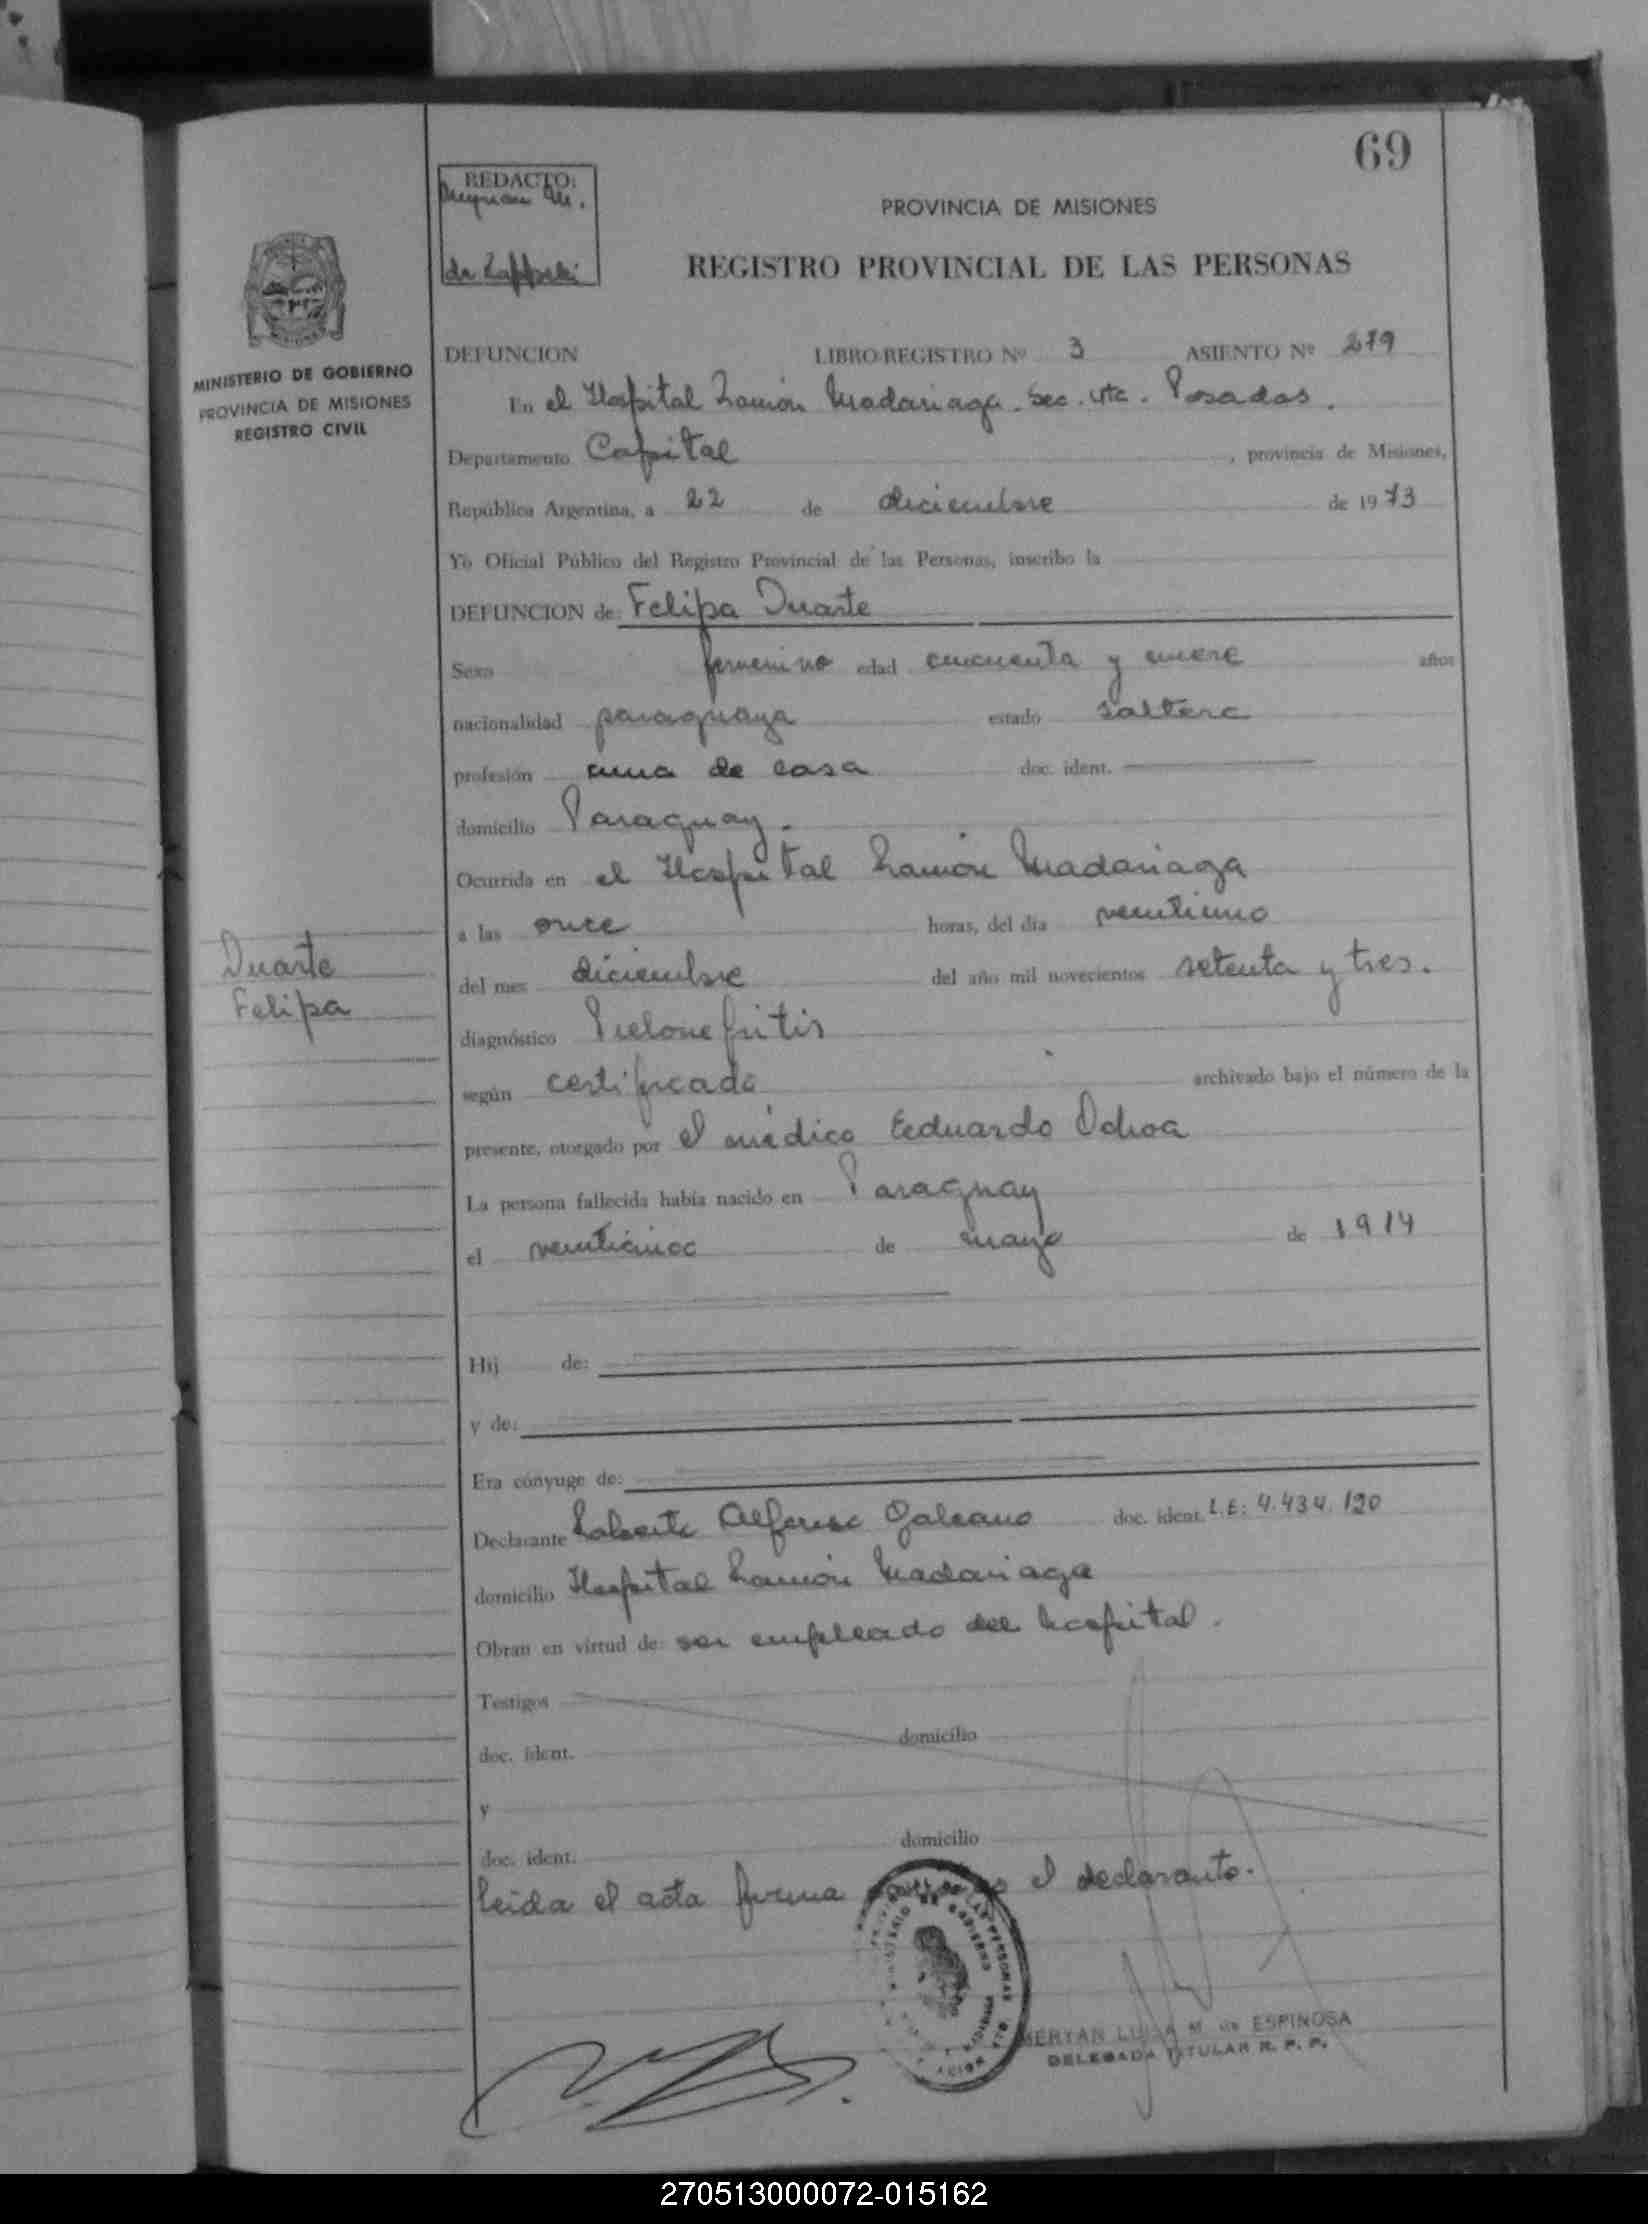 69
REDACTO:
PROVINCIA DE MISIONES
REGISTRO PROVINCIAL DE LAS PERSONAS
MINISTERIO DE GOBIERNO
PROVINCIA DE MISIONES
REGISTRO CIVIL
DEFUNCION LIBRO-REGISTRO Nº 3 ASIENTO Nº 279
En el Hospital Ramón Madariaga. Sec. 4ta. Posadas.
Departamento Capital, provincia de Misiones,
República Argentina, a 22 de diciembre de 1973
Yo Oficial Público del Registro Provincial de las Personas, inscribo la
DEFUNCION de: Felipa Duarte
Sexo femenino edad cincuenta y nueve años
nacionalidad paraguaya estado soltera
profesión ama de casa doc. ident.
domicilio Paraguay.
Ocurrida en el Hospital Ramón Madariaga
a las once horas, del día veintiuno
del mes diciembre del año mil novecientos setenta y tres.
Duarte
Felipa
diagnóstico Pielonefritis
según certificado archivado bajo el número de la
presente, otorgado por el médico Eduardo Ochoa
La persona fallecida había nacido en Paraguay
el veinticinco de mayo de 1914
Hij de:
y de:
Era cónyuge de:
Declarante Alfonso Galeano doc. ident. L.E: 4.434.120
domicilio Hospital Ramón Madariaga
Obran en virtud de: ser empleado del hospital.
Testigos
domicilio
doc. ident.
y
domicilio
doc. ident.
Leida el acta firma el declarante.
MERYAN LUISA M. de ESPINOSA
DELEGADA TITULAR R. P. P.
270513000072-015162